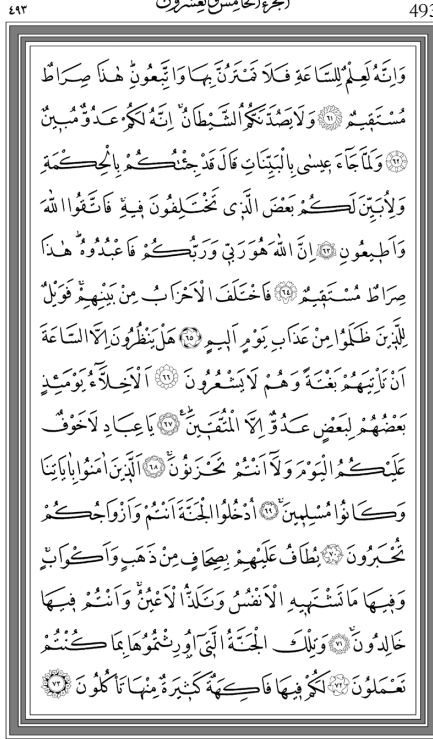 ٤٩٣ الجزء الخامس والعشرون 493
وَاِنَّهُ لَعِلْمٌ لِلسَّاعَةِ فَلَا تَمْتَرُنَّ بِهَا وَاتَّبِعُونِۜ هٰذَا صِرَاطٌ
مُسْتَقٖيمٌ ﴿٦١﴾ وَلَا يَصُدَّنَّكُمُ الشَّيْطَانُۚ اِنَّهُ لَكُمْ عَدُوٌّ مُبٖينٌ
﴿٦٢﴾ وَلَمَّا جَٓاءَ عٖيسٰى بِالْبَيِّنَاتِ قَالَ قَدْ جِئْتُكُمْ بِالْحِكْمَةِ
وَلِاُبَيِّنَ لَكُمْ بَعْضَ الَّذٖى تَخْتَلِفُونَ فٖيهِۚ فَاتَّقُوا اللّٰهَ
وَاَطٖيعُونِ ﴿٦٣﴾ اِنَّ اللّٰهَ هُوَ رَبّٖى وَرَبُّكُمْ فَاعْبُدُوهُۜ هٰذَا
صِرَاطٌ مُسْتَقٖيمٌ ﴿٦٤﴾ فَاخْتَلَفَ الْاَحْزَابُ مِنْ بَيْنِهِمْۚ فَوَيْلٌ
لِلَّذٖينَ ظَلَمُوا مِنْ عَذَابِ يَوْمٍ اَلٖيمٍ ﴿٦٥﴾ هَلْ يَنْظُرُونَ اِلَّا السَّاعَةَ
اَنْ تَأْتِيَهُمْ بَغْتَةً وَهُمْ لَا يَشْعُرُونَ ﴿٦٦﴾ اَلْاَخِلَّٓاءُ يَوْمَئِذٍ
بَعْضُهُمْ لِبَعْضٍ عَدُوٌّ اِلَّا الْمُتَّقٖينَۜ ﴿٦٧﴾ يَا عِبَادِ لَا خَوْفٌ
عَلَيْكُمُ الْيَوْمَ وَلَٓا اَنْتُمْ تَحْزَنُونَۚ ﴿٦٨﴾ اَلَّذٖينَ اٰمَنُوا بِاٰيَاتِنَا
وَكَانُوا مُسْلِمٖينَۚ ﴿٦٩﴾ اُدْخُلُوا الْجَنَّةَ اَنْتُمْ وَاَزْوَاجُكُمْ
تُحْبَرُونَ ﴿٧٠﴾ يُطَافُ عَلَيْهِمْ بِصِحَافٍ مِنْ ذَهَبٍ وَاَكْوَابٍۚ
وَفٖيهَا مَا تَشْتَهٖيهِ الْاَنْفُسُ وَتَلَذُّ الْاَعْيُنُۚ وَاَنْتُمْ فٖيهَا
خَالِدُونَۚ ﴿٧١﴾ وَتِلْكَ الْجَنَّةُ الَّتٖٓى اُورِثْتُمُوهَا بِمَا كُنْتُمْ
تَعْمَلُونَ ﴿٧٢﴾ لَكُمْ فٖيهَا فَاكِهَةٌ كَثٖيرَةٌ مِنْهَا تَأْكُلُونَ ﴿٧٣﴾